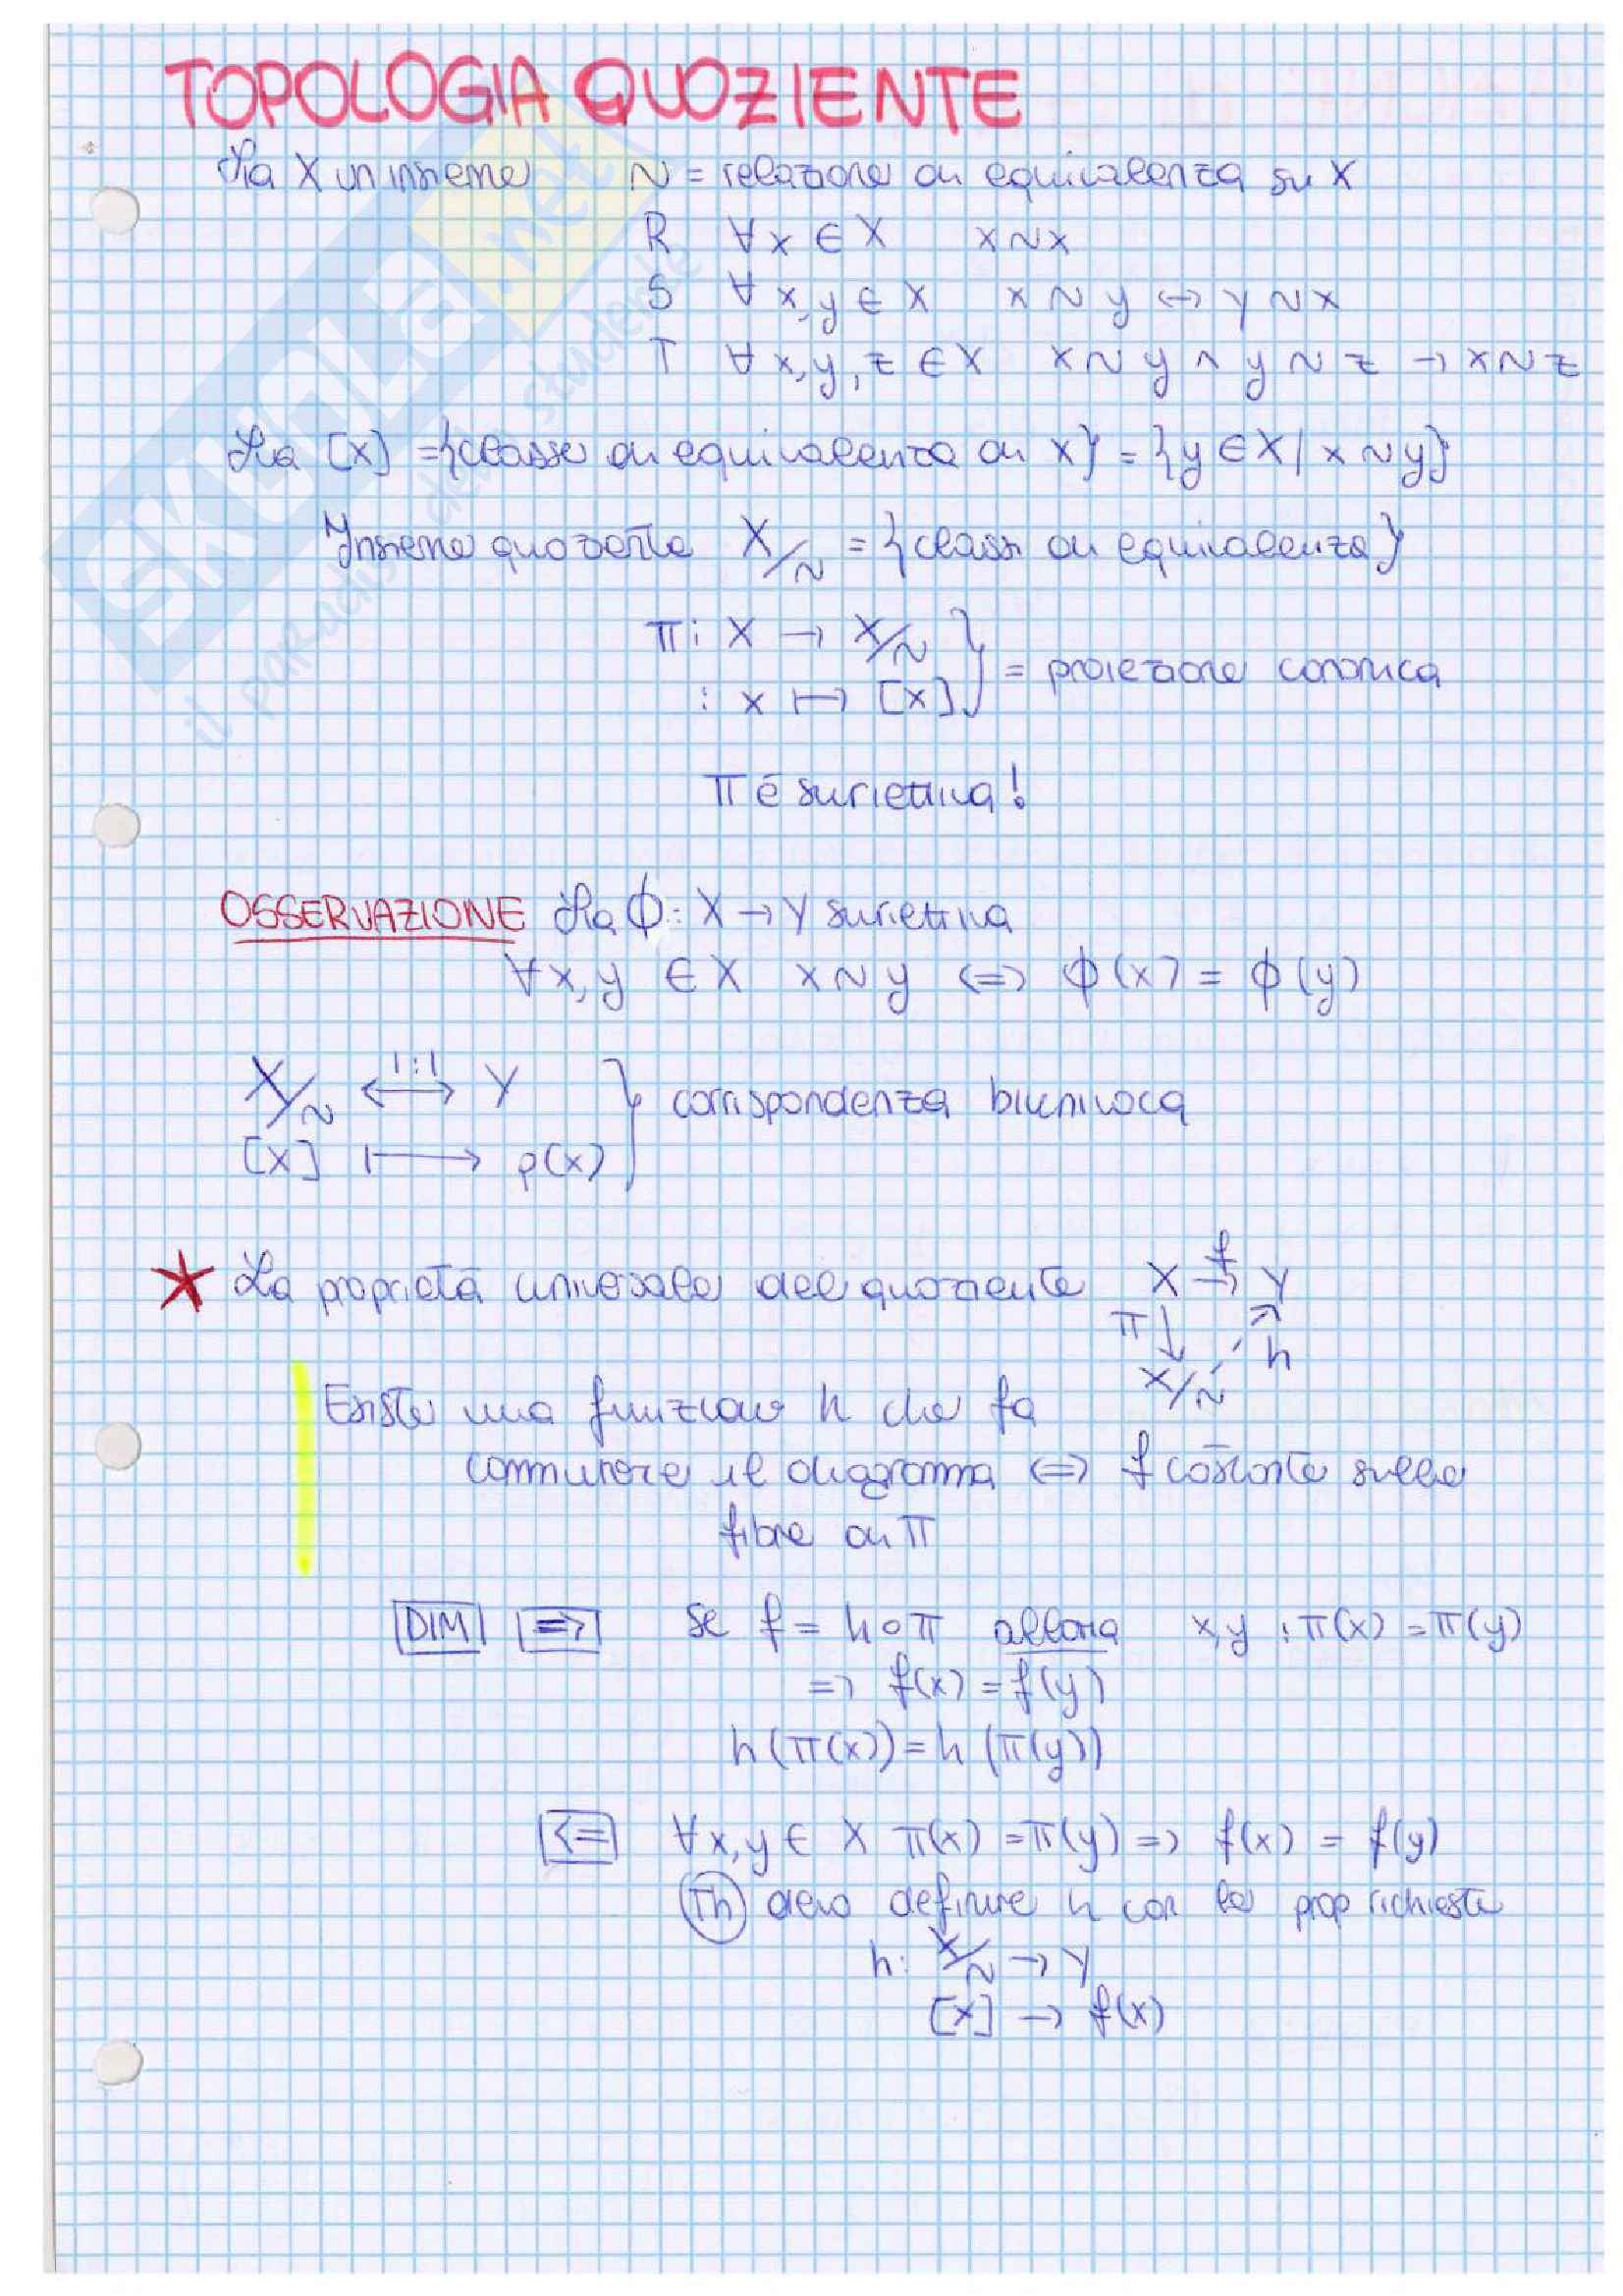 TOPOLOGIA QUOZIENTE
Sia X un insieme ~ = relazione di equivalenza su X
R ∀x ∈ X x~x
S ∀x,y ∈ X x~y ↔ y~x
T ∀x,y,z ∈ X x~y ∧ y~z → x~z
Sia [x] = {classe di equivalenza di x} = {y ∈ X | x~y}
Insieme quoziente X/~ = {classi di equivalenza}
π: X → X/~
: x ↦ [x] } = proiezione canonica
π è suriettiva!
OSSERVAZIONE Sia ϕ: X → Y suriettiva
∀x,y ∈ X x~y ⇔ ϕ(x) = ϕ(y)
X/~ ⟷ 1:1 Y } corrispondenza biunivoca
[x] ⟼ ρ(x)
* La proprietà universale del quoziente X →f Y
π ↓ h
X/~
Esiste una funzione h che fa
commutare il diagramma ⇔ f costante sulle
fibre di π
DIM ⇒ Se f = h∘π allora x,y : π(x) = π(y)
⇒ f(x) = f(y)
h(π(x)) = h(π(y))
⇐ ∀x,y ∈ X π(x) = π(y) ⇒ f(x) = f(y)
Th devo definire h con le prop richieste
h: X/~ → Y
[x] → f(x)
SKUOLA.net
il paradiso dello studente